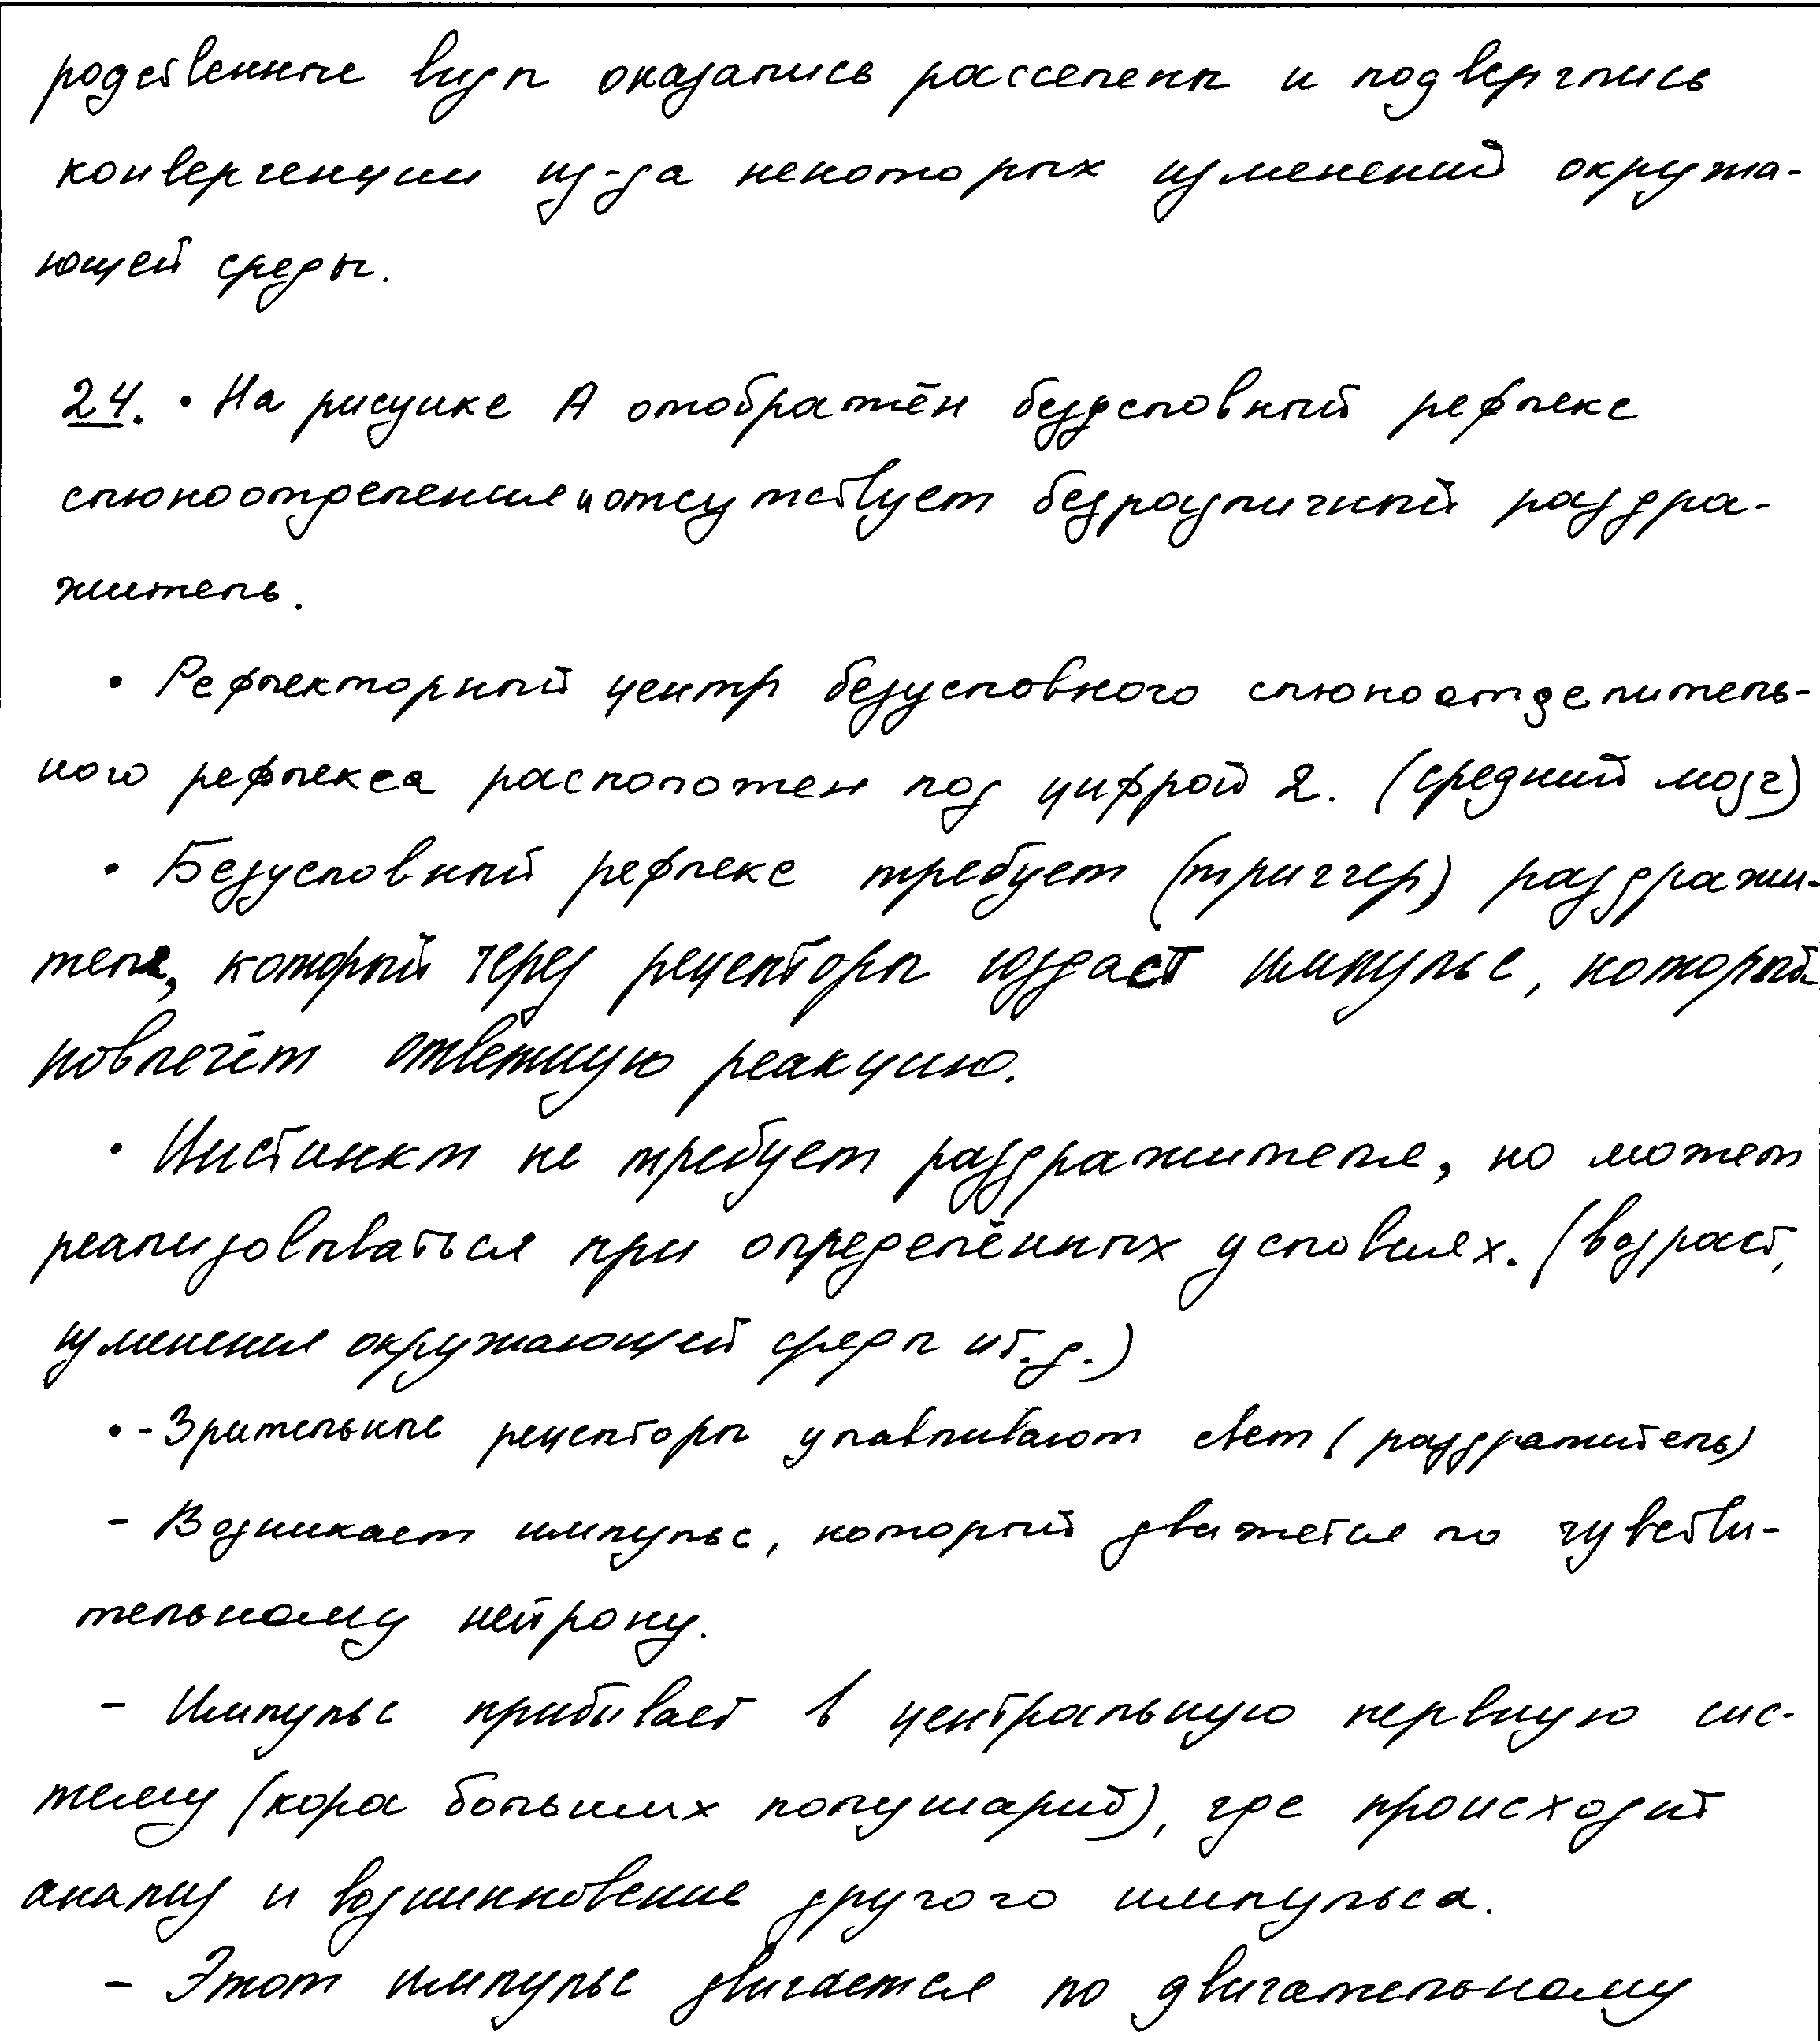 родственные виды оказались расселены и подверглись
конвергенции из-за некоторых изменений окружа-
ющей среды.
24. • На рисунке А отображён безусловный рефлекс
слюноотделения и отсутствует безразличный раздра-
житель.
• Рефлекторный центр безусловного слюноотделитель-
ного рефлекса расположен под цифрой 2. (средний мозг)
• Безусловный рефлекс требует (триггер) раздражи-
теля, который через рецепторы создаст импульс, который
повлечёт ответную реакцию.
• Инстинкт не требует раздражителя, но может
реализовываться при определённых условиях. (возраст,
изменения окружающей среды и т.д.)
• - Зрительные рецепторы улавливают свет (раздражитель)
- Возникает импульс, который движется по чувстви-
тельному нейрону.
- Импульс прибывает в центральную нервную сис-
тему (кора больших полушарий), где происходит
анализ и возникновение другого импульса.
- Этот импульс двигается по двигательному